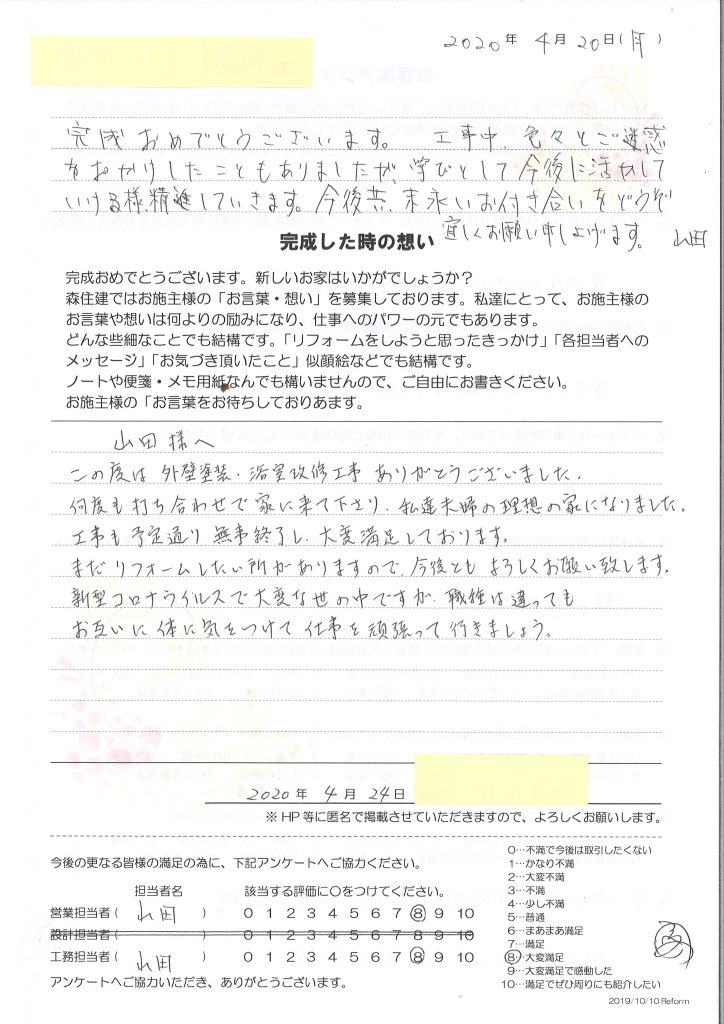 2020年 4月 20日(月)
完成おめでとうございます。 工事中、色々とご迷惑
をおかけしたこともありましたが、学びとして今後に活かして
いける様、精進していきます。今後共、末永いお付き合いをどうぞ
宜しくお願い申し上げます。 山田
完成した時の想い
完成おめでとうございます。新しいお家はいかがでしょうか？
森住建ではお施主様の「お言葉・想い」を募集しております。私達にとって、お施主様の
お言葉や想いは何よりの励みになり、仕事へのパワーの元でもあります。
どんな些細なことでも結構です。「リフォームをしようと思ったきっかけ」「各担当者への
メッセージ」「お気づき頂いたこと」似顔絵などでも結構です。
ノートや便箋・メモ用紙なんでも構いませんので、ご自由にお書きください。
お施主様の「お言葉をお待ちしておりあます。
山田様へ
この度は 外壁塗装・浴室改修工事 ありがとうございました。
何度も打ち合わせで家に来て下さり、私達夫婦の理想の家になりました。
工事も予定通り無事終了し、大変満足しております。
まだリフォームしたい所がありますので、今後ともよろしくお願い致します。
新型コロナウイルスで大変な世の中ですが、職種は違っても
お互いに体に気をつけて仕事を頑張って行きましょう。
2020年 4月 24日
※HP等に匿名で掲載させていただきますので、よろしくお願いします。
今後の更なる皆様の満足の為に、下記アンケートへご協力ください。
担当者名 該当する評価に○をつけてください。
営業担当者( 山田 ) 0 1 2 3 4 5 6 7 8 9 10
設計担当者( ) 0 1 2 3 4 5 6 7 8 9 10
工務担当者( 山田 ) 0 1 2 3 4 5 6 7 8 9 10
アンケートへご協力いただき、ありがとうございます。
0…不満で今後は取引したくない
1…かなり不満
2…大変不満
3…不満
4…少し不満
5…普通
6…まあまあ満足
7…満足
8…大変満足
9…大変満足で感動した
10…満足でぜひ周りにも紹介したい
2019/10/10 Reform